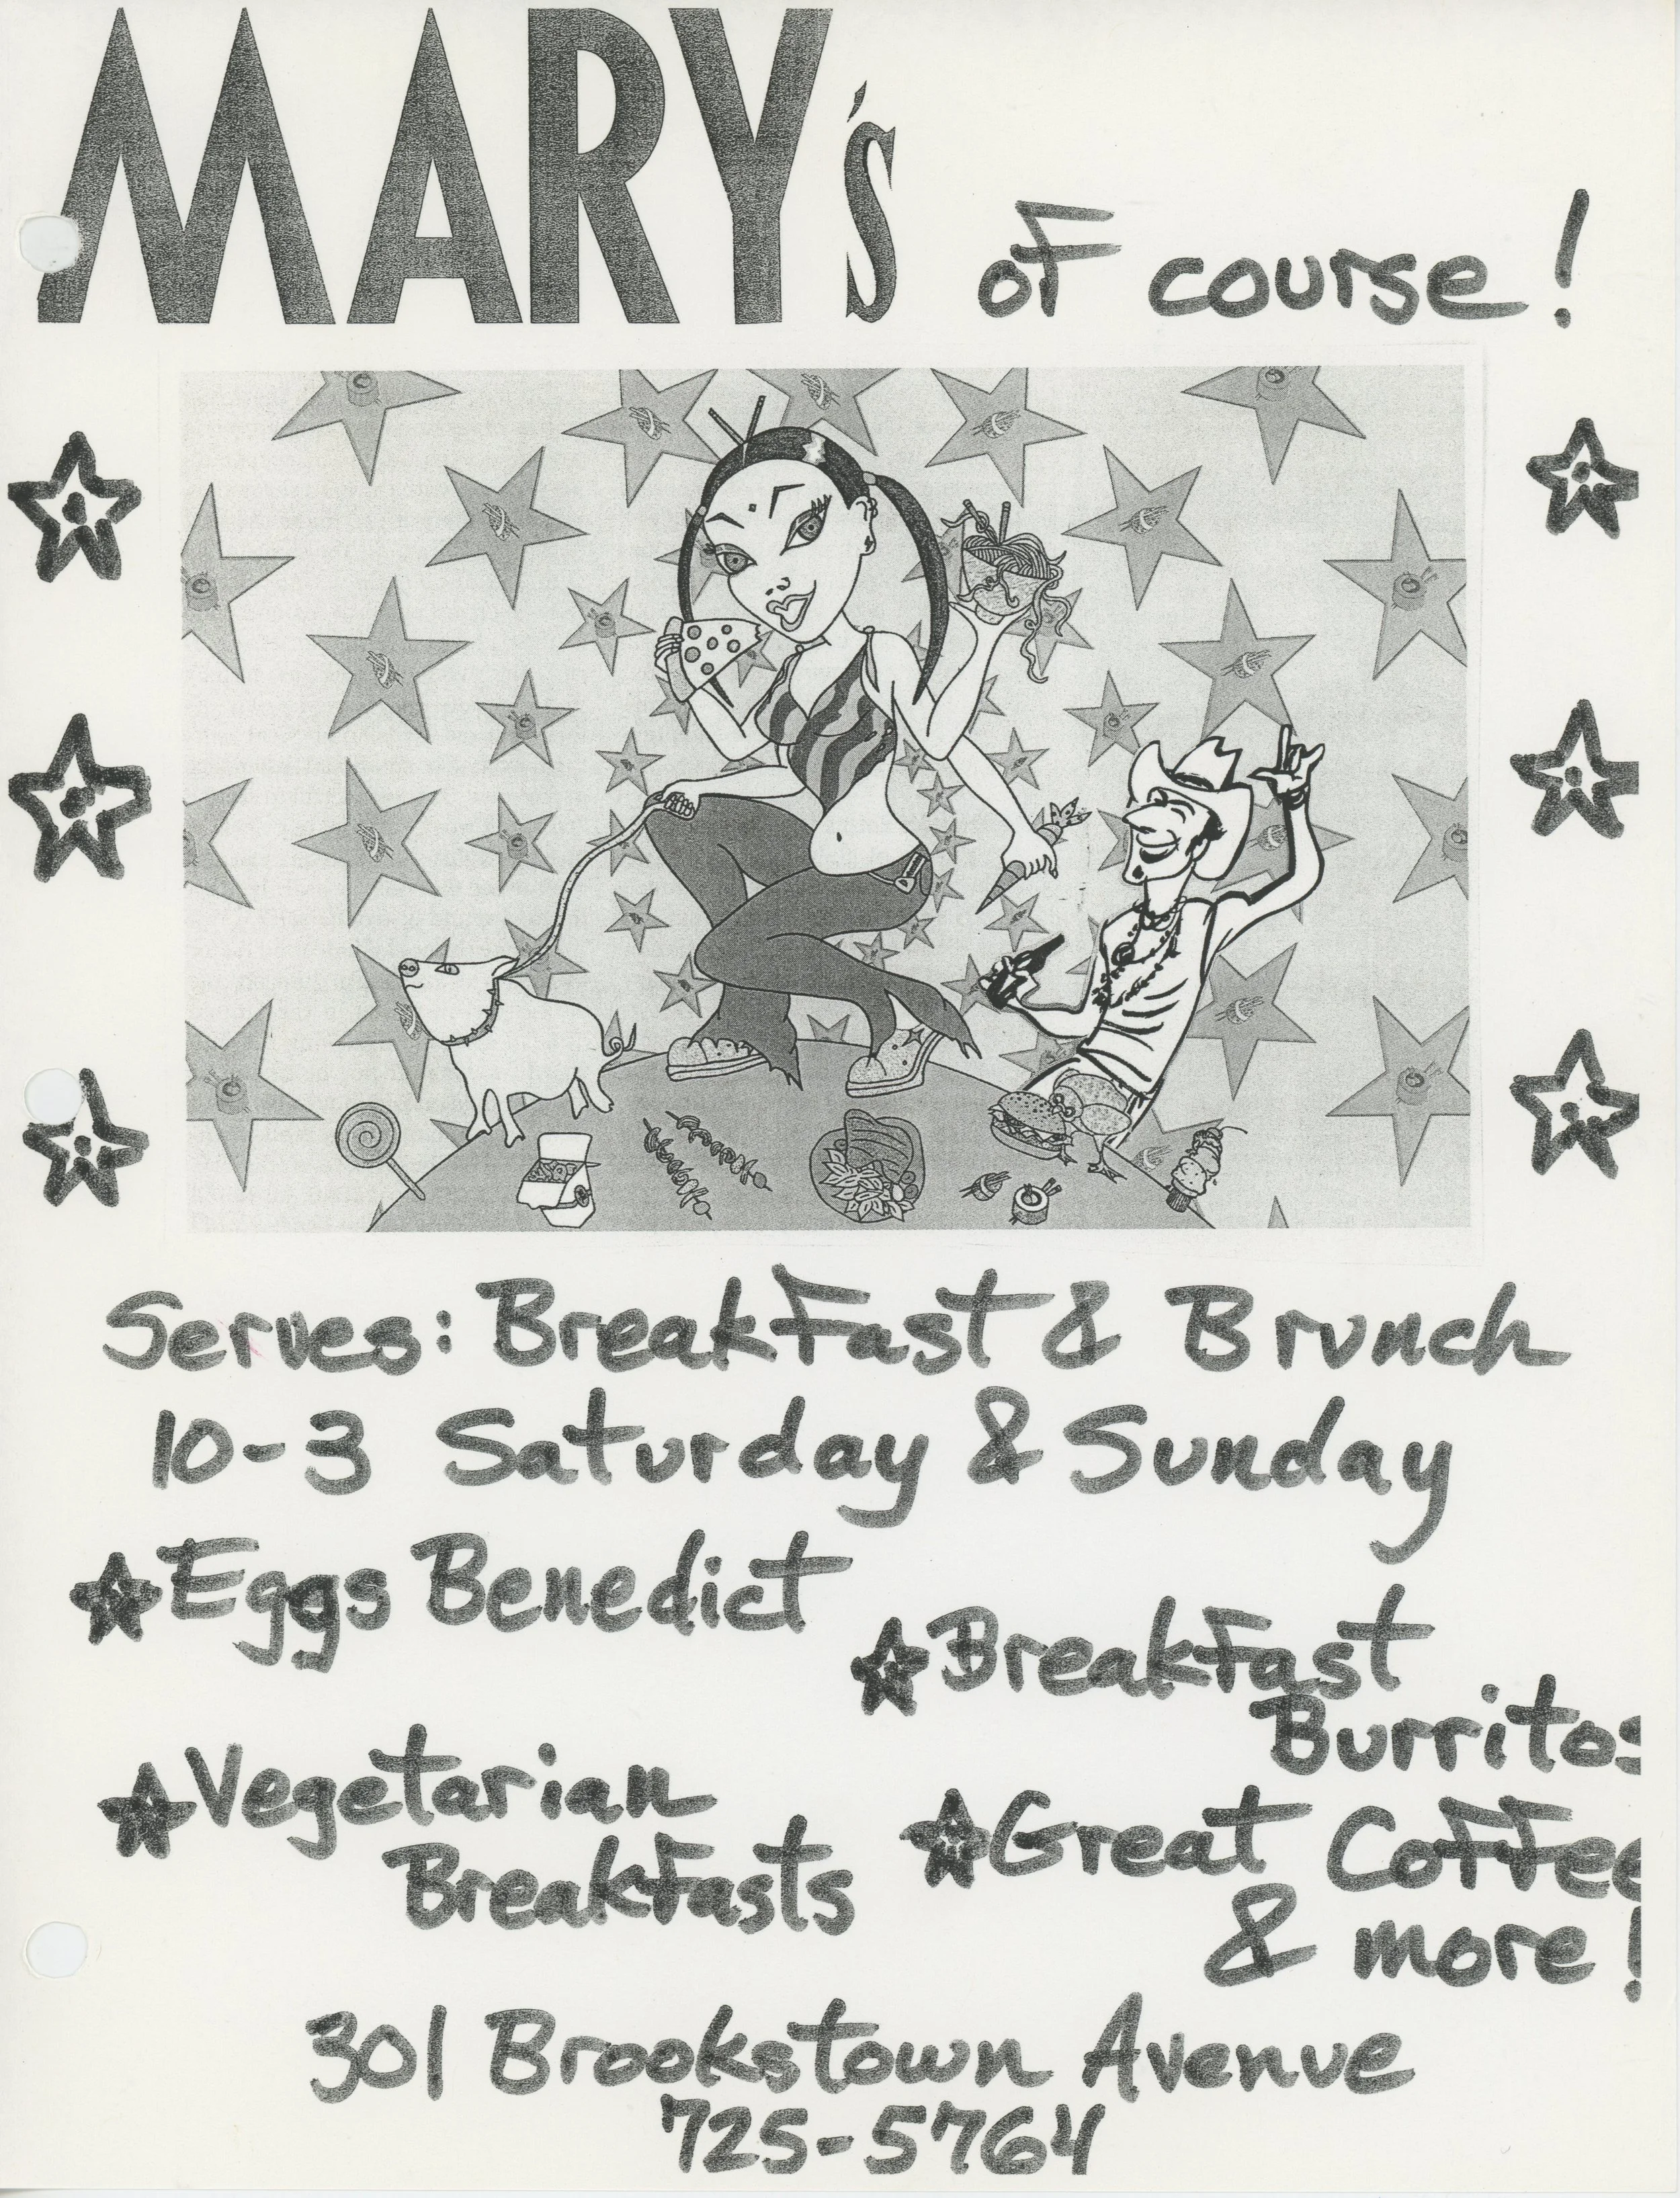 MARY's of course!
Serves: Breakfast & Brunch
10-3 Saturday & Sunday
Eggs Benedict
Breakfast
Burritos
Vegetarian
Breakfasts
Great Coffee
& more!
301 Brookstown Avenue
725-5764